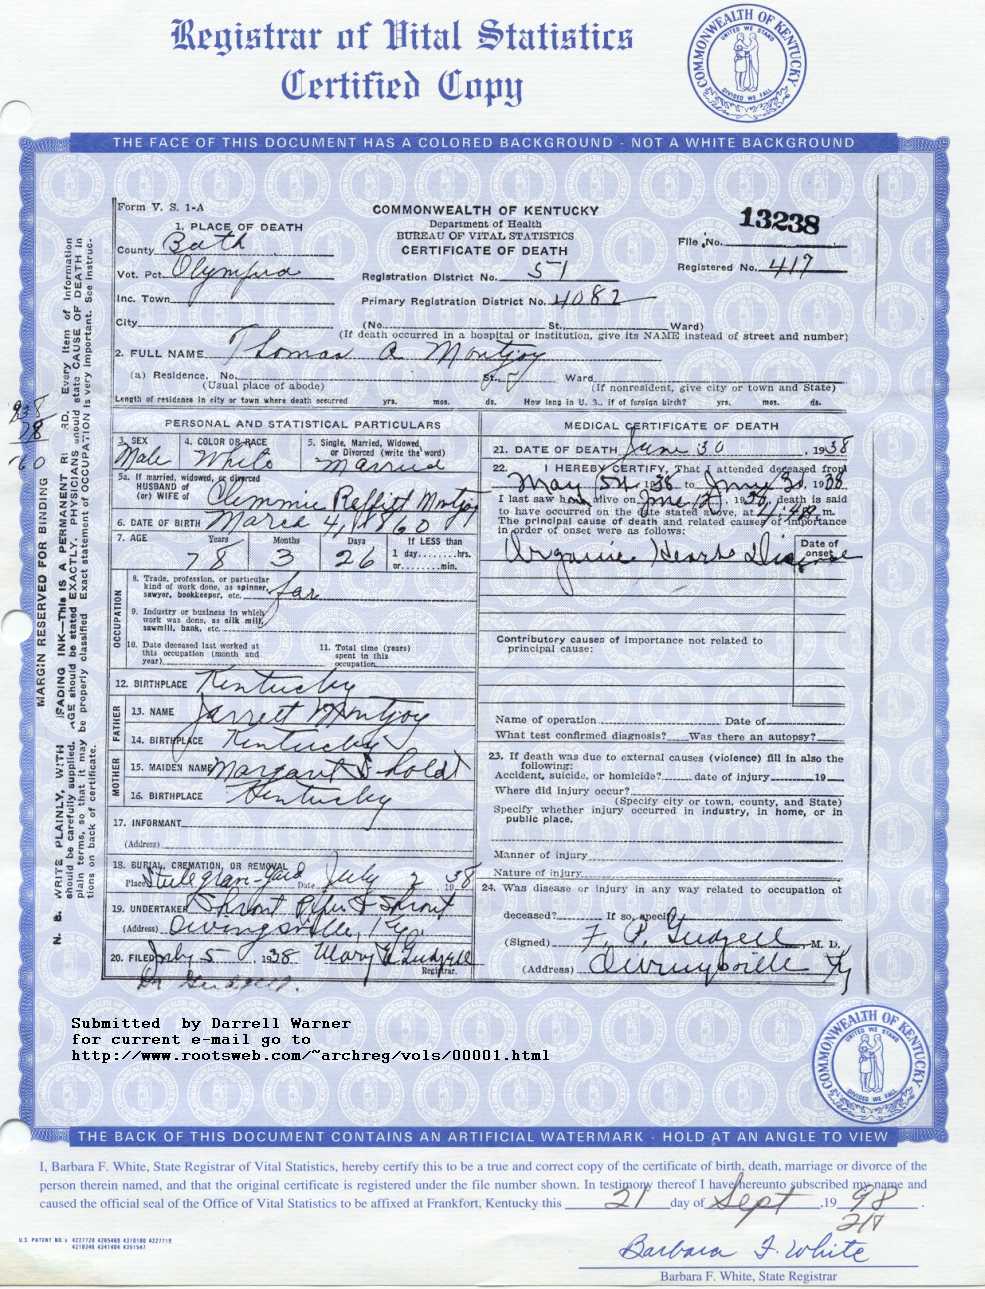 Registrar of Vital Statistics
Certified Copy
COMMONWEALTH OF KENTUCKY
UNITED WE STAND
DIVIDED WE FALL
THE FACE OF THIS DOCUMENT HAS A COLORED BACKGROUND - NOT A WHITE BACKGROUND
Form V. S. 1-A
1. PLACE OF DEATH
County Bath
Vot. Pct. Olympia
Inc. Town
City
COMMONWEALTH OF KENTUCKY
Department of Health
BUREAU OF VITAL STATISTICS
CERTIFICATE OF DEATH
Registration District No. 51
Primary Registration District No. 4082
13238
File No.
Registered No. 417
(No. St., Ward)
(If death occurred in a hospital or institution, give its NAME instead of street and number)
2. FULL NAME Thomas A Montjoy
(a) Residence. No. St., Ward
(Usual place of abode) (If nonresident, give city or town and State)
Length of residence in city or town where death occurred yrs. mos. ds. How long in U. S., if of foreign birth? yrs. mos. ds.
PERSONAL AND STATISTICAL PARTICULARS
3. SEX Male
4. COLOR OR RACE White
5. Single, Married, Widowed, or Divorced (write the word) Married
5a. If married, widowed, or divorced
HUSBAND of
(or) WIFE of Clemmie Reffitt Montjoy
6. DATE OF BIRTH March 4, 1860
7. AGE Years Months Days If LESS than
78 3 26 1 day........hrs.
or........min.
OCCUPATION
8. Trade, profession, or particular
kind of work done, as spinner,
sawyer, bookkeeper, etc. far
9. Industry or business in which
work was done, as silk mill,
sawmill, bank, etc.
10. Date deceased last worked at
this occupation (month and
year)
11. Total time (years)
spent in this
occupation
12. BIRTHPLACE Kentucky
FATHER
13. NAME Jarrett Montjoy
14. BIRTHPLACE Kentucky
MOTHER
15. MAIDEN NAME Margaret
16. BIRTHPLACE Kentucky
17. INFORMANT
(Address)
18. BURIAL, CREMATION, OR REMOVAL
Place Date July 2 1938
19. UNDERTAKER Shrout Piper & Shrout
(Address) Owingsville, Ky.
20. FILED July 5, 1938 Mary E Gudgell
Registrar.
Dr Gudgell.
MEDICAL CERTIFICATE OF DEATH
21. DATE OF DEATH June 30, 1938
22. I HEREBY CERTIFY, That I attended deceased from
May 1938 to June 30, 1938
I last saw h alive on June 1938, death is said
to have occurred on the date stated above, at m.
The principal cause of death and related causes of importance
in order of onset were as follows:
Date of
onset
Organic Heart Disease
Contributory causes of importance not related to
principal cause:
Name of operation Date of
What test confirmed diagnosis? Was there an autopsy?
23. If death was due to external causes (violence) fill in also the
following:
Accident, suicide, or homicide? date of injury 19
Where did injury occur?
(Specify city or town, county, and State)
Specify whether injury occurred in industry, in home, or in
public place.
Manner of injury
Nature of injury
24. Was disease or injury in any way related to occupation of
deceased? If so, specify
(Signed) F. P. Gudgell, M. D.
(Address) Owingsville Ky
MARGIN RESERVED FOR BINDING
938
78
60
Submitted by Darrell Warner
for current e-mail go to
http://www.rootsweb.com/~archreg/vols/00001.html
COMMONWEALTH OF KENTUCKY
UNITED WE STAND
DIVIDED WE FALL
THE BACK OF THIS DOCUMENT CONTAINS AN ARTIFICIAL WATERMARK - HOLD AT AN ANGLE TO VIEW
I, Barbara F. White, State Registrar of Vital Statistics, hereby certify this to be a true and correct copy of the certificate of birth, death, marriage or divorce of the
person therein named, and that the original certificate is registered under the file number shown. In testimony thereof I have hereunto subscribed my name and
caused the official seal of the Office of Vital Statistics to be affixed at Frankfort, Kentucky this 21 day of Sept, 1998.
Barbara F. White
Barbara F. White, State Registrar